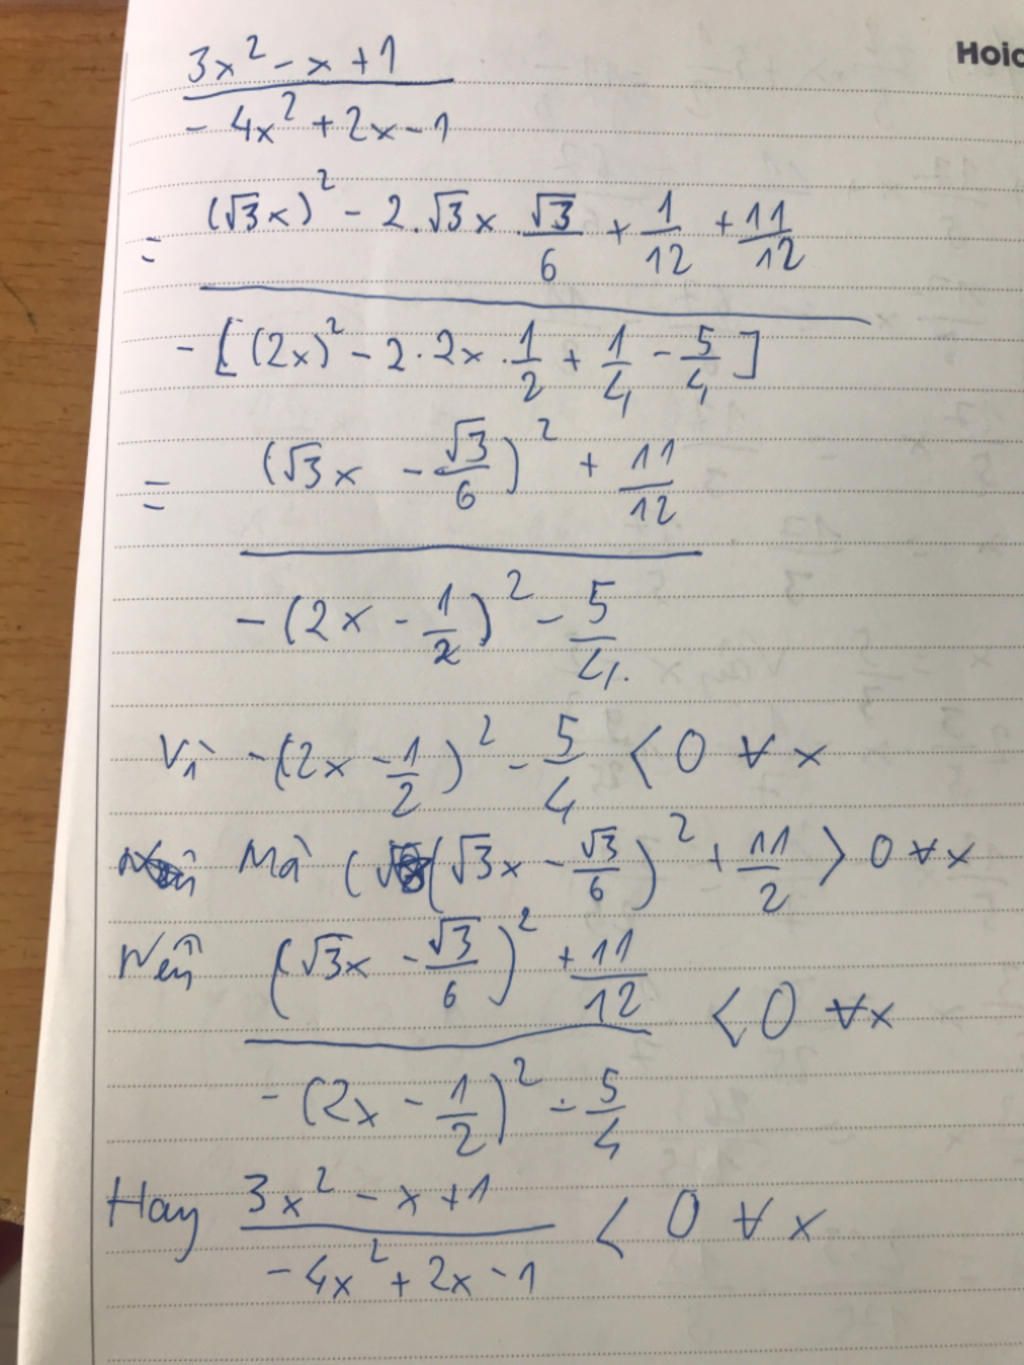 Hoic
3x² - x + 1 / - 4x² + 2x - 1
= (√3x)² - 2.√3x.√3/6 + 1/12 + 11/12 / - [(2x)² - 2.2x.1/2 + 1/4 - 5/4]
= (√3x - √3/6)² + 11/12 / - (2x - 1/2)² - 5/4.
Vì -(2x - 1/2)² - 5/4 < 0 ∀ x
Mà (√3x - √3/6)² + 11/2 > 0 ∀ x
Nên (√3x - √3/6)² + 11/12 / - (2x - 1/2)² - 5/4 < 0 ∀x
Hay 3x² - x + 1 / - 4x² + 2x - 1 < 0 ∀ x